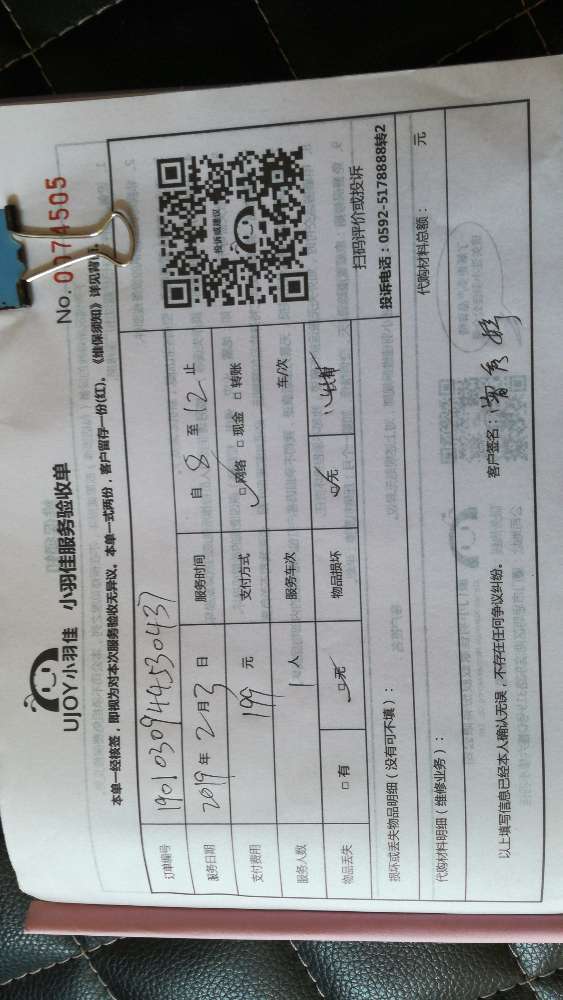 UJOY小羽佳 小羽佳服务验收单
No. 0074505
本单一经核签，即视为对本次服务验收无异议。本单一式两份，客户留存一份(红)。《维保须知》详见背
订单编号 19010309449530437
服务日期 2019年2月3日 服务时间 自8至12止
支付费用 199元 支付方式 □网络 □现金 □转账
服务人数 1人 服务车次 车/次
物品丢失 □有 □无 物品损坏 □无
投诉或建议
扫码评价或投诉
投诉电话：0592-5178888转2
损坏或丢失物品明细（没有可不填）：
代购材料明细（维修业务）： 代购材料总额： 元
以上填写信息已经本人确认无误，不存在任何争议纠纷。 客户签名：